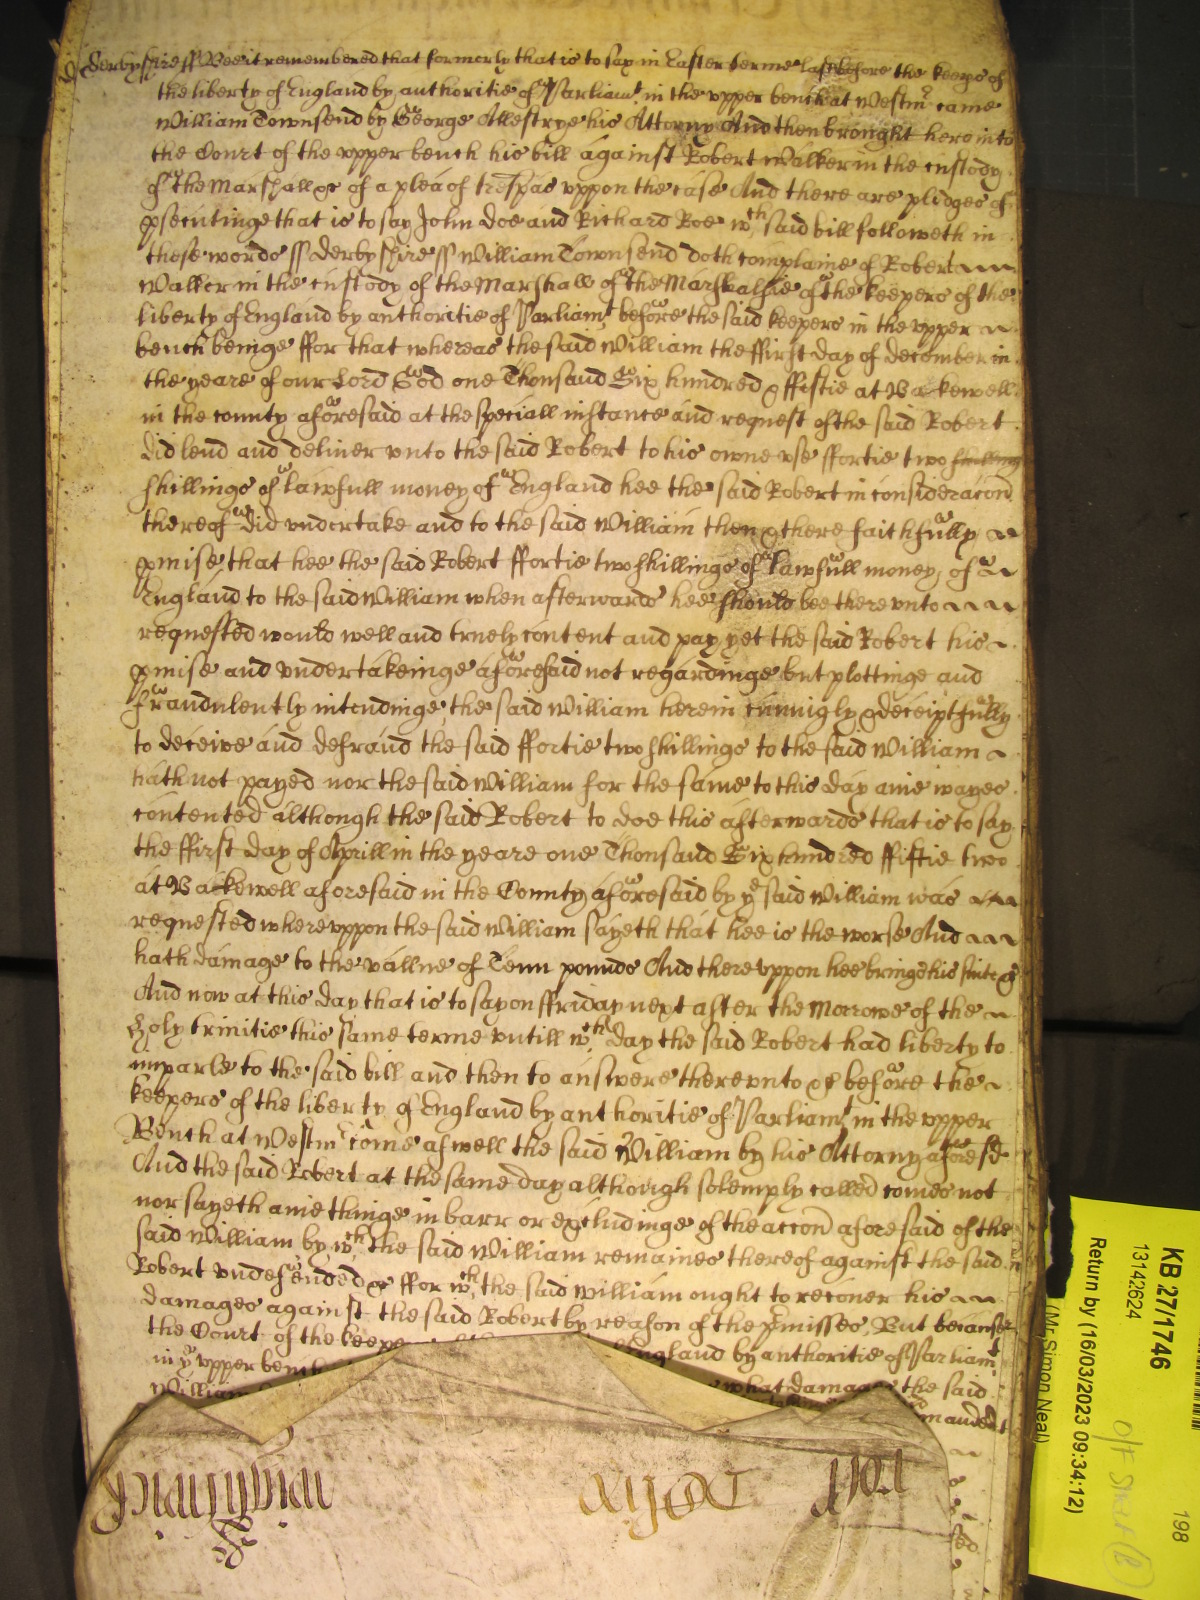 Derbyshire ss Bee it remembered that formerly that is to say in Easter terme last before the keeps of
the liberty of England by authoritie of Parliamt in the upper bench at Westmr came
William Townsend by George Allestrye his Attorny And then brought here into
the Court of the upper bench his bill against Robert Walker in the custody
of the Marshall &c of a plea of trespas uppon the case And there are pledges of
psecutinge that is to say John Doe and Richard Roe wch said bill followeth in
these words ss Derbyshire ss William Townsend doth complaine of Robert
Walker in the custody of the Marshall of the Marshalsie of the keepers of the
liberty of England by authoritie of Parliamt before the said keepers in the upper
bench beinge ffor that whereas the said William the ffirst day of December in
the yeare of our Lord God one Thousand Six hundred & ffiftie at Bakewell
in the county aforesaid at the speciall instance and request of the said Robert
did lend and deliver unto the said Robert to his owne use ffortie two shillings
shillings of lawfull money of England hee the said Robert in consideracon
thereof did undertake and to the said William then & there faithfully
pmise that hee the said Robert ffortie two shillings of lawfull money of
England to the said William when afterwards hee should bee there unto
requested would well and truely content and pay yet the said Robert his
pmise and undertakeinge aforesaid not regardinge but plottinge and
fraudulently intendinge the said William herein cunnigly & deceiptfully
to deceive and defraud the said ffortie two shillings to the said William
hath not payed nor the said William for the same to this day anie wayes
contented although the said Robert to doe this afterwards that is to say
the ffirst day of Aprill in the yeare one Thousand Six hundred ffiftie two
at Bakewell aforesaid in the County aforesaid by ye said William was
requested whereuppon the said William sayeth that hee is the worse And
hath damage to the vallue of Tenn pounds And thereuppon hee brings his suite &c
And now at this day that is to say on ffriday next after the Morrowe of the
Holy trinitie this same terme untill wch day the said Robert had liberty to
imparle to the said bill and then to answere thereunto &c before the
keepers of the liberty of England by authoritie of Parliamt in the upper
Bench at Westmr come aswell the said William by his Attorny aforesd
And the said Robert at the same day although solemply called comes not
nor sayeth anie thinge in barr or excludinge of the accon aforesaid of the
said William by wch the said William remaines thereof against the said
Robert undefended &c ffor wch the said William ought to recover his
damages against the said Robert by reason of the pmisses, But because
the Court of the keepe England by authoritie of Parliamt
in ye upper bench what damage the said
William
KB 27/1746
13142624
Return by (16/03/2023 09:34:12)
(Mr Simon Neal)
198